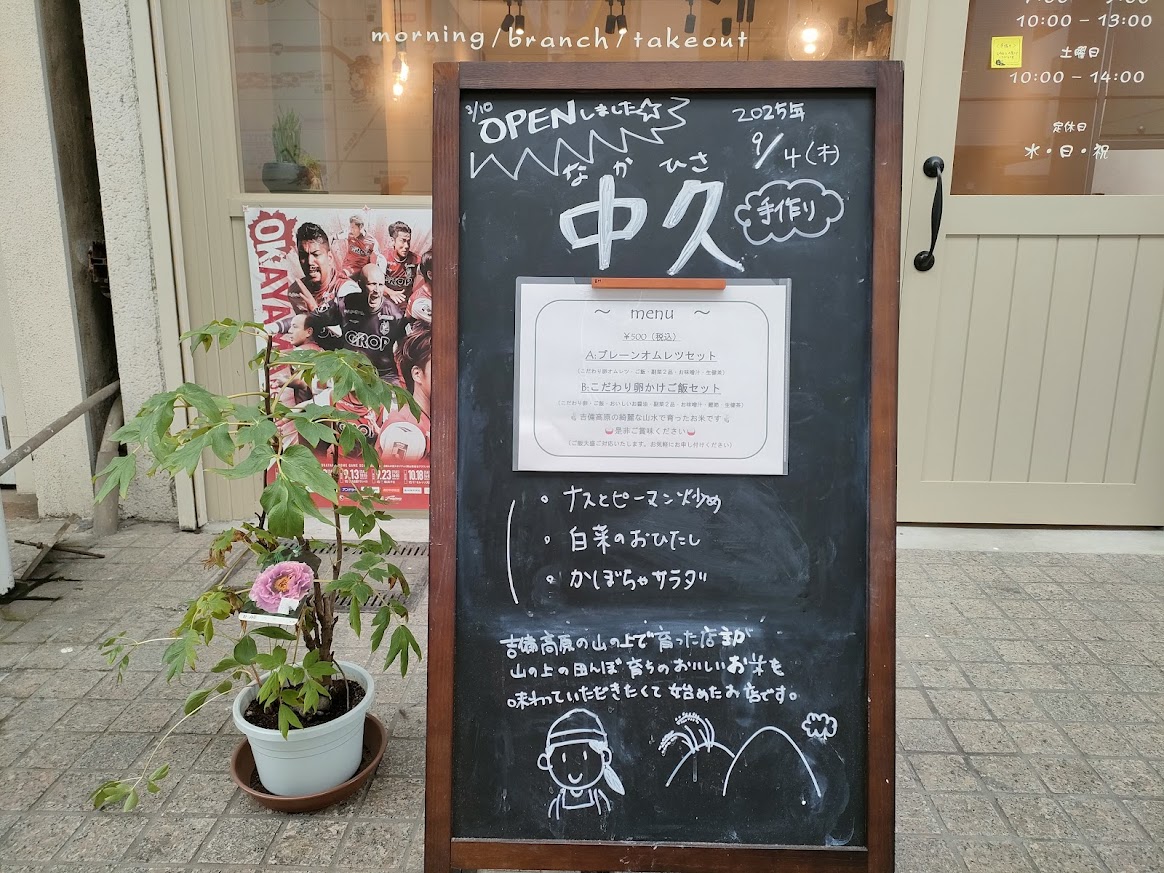 morning/branch/takeout
10:00 – 13:00
土曜日
10:00 – 14:00
定休日
水・日・祝
3/10
OPENしました☆
2025年
9/4(木)
なか ひさ
中久
手作り
〜 menu 〜
¥500（税込）
A:プレーンオムレツセット
（こだわり卵オムレツ・ご飯・副菜２品・お味噌汁・生健茶）
B:こだわり卵かけご飯セット
（こだわり卵・ご飯・おいしいお醤油・副菜２品・お味噌汁・鰹節・生健茶）
吉備高原の綺麗な山水で育ったお米です
是非ご賞味ください
（ご飯大盛ご対応いたします。お気軽にお申し付けください）
。ナスとピーマン炒め
。白菜のおひたし
。かぼちゃサラダ
吉備高原の山の上で育った店主が
山の上の田んぼ育ちのおいしいお米を
味わっていただきたくて始めたお店です。
OKAYA
CROP
9.13
9.23
10.18